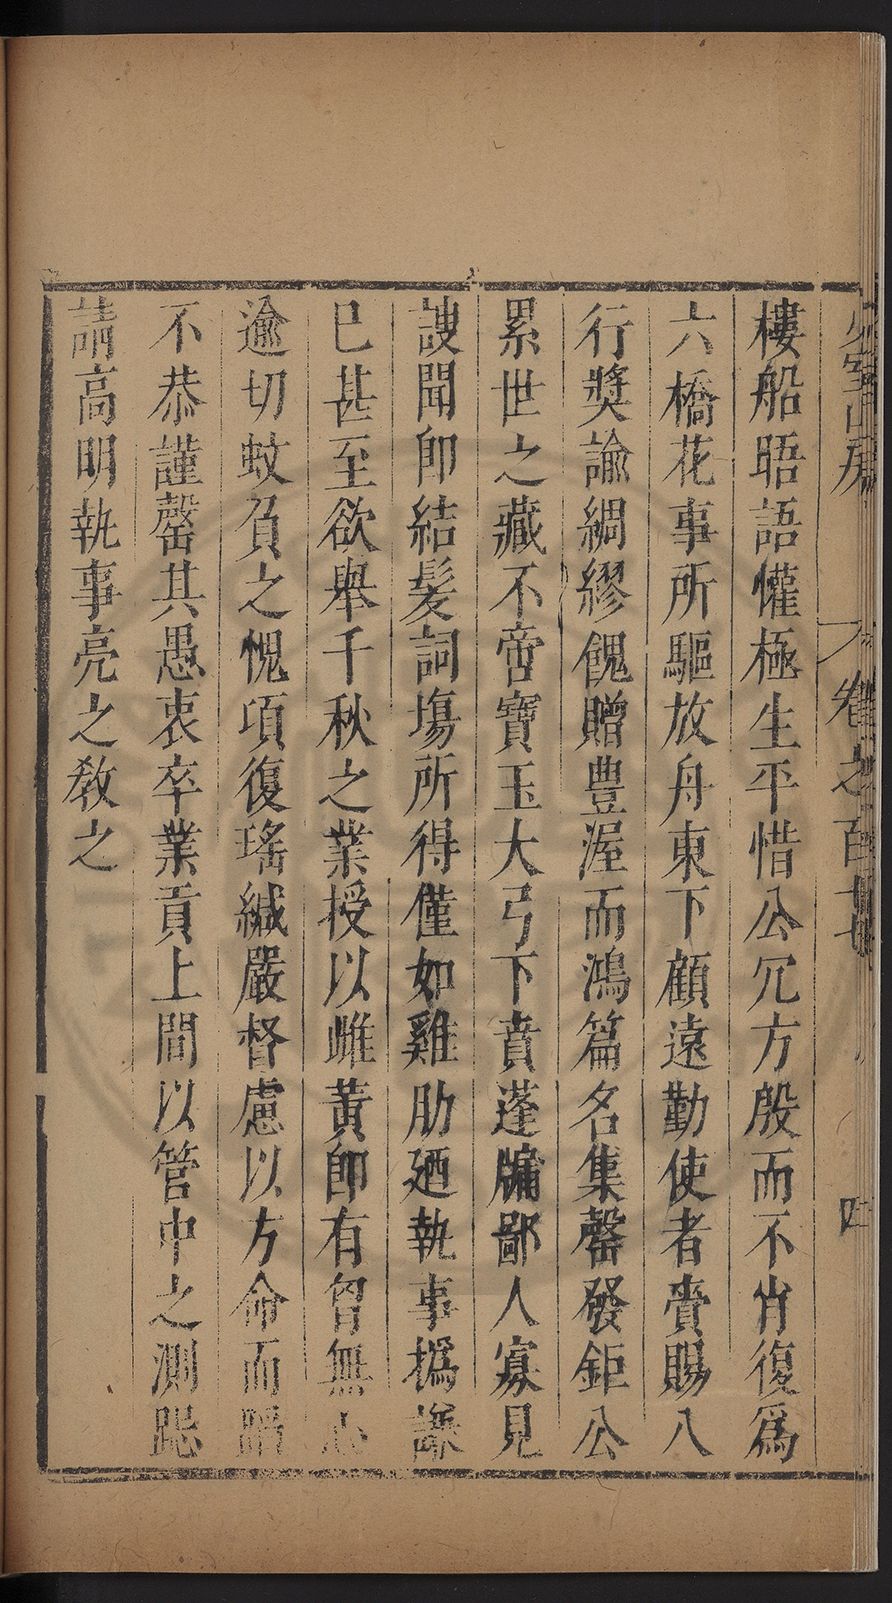 少室山房
卷之百十七
四
樓船晤語懽極生平惜公冗方殷而不肖復爲
六橋花事所驅放舟東下顧遠勤使者賫賜八
行奬諭綢繆餽贈豊渥而鴻篇名集罄發鉅公
累世之藏不啻寶玉大弓下賁蓬牖鄙人寡見
謏聞卽結髮詞塲所得僅如雞肋廼執事撝謙
已甚至欲舉千秋之業授以雌黃卽有曾無心
逾切蚊負之愧項復瑤緘嚴督慮以方命而蹈
不恭謹罄其愚衷卒業貢上間以管中之測跽
請高明執事亮之敎之